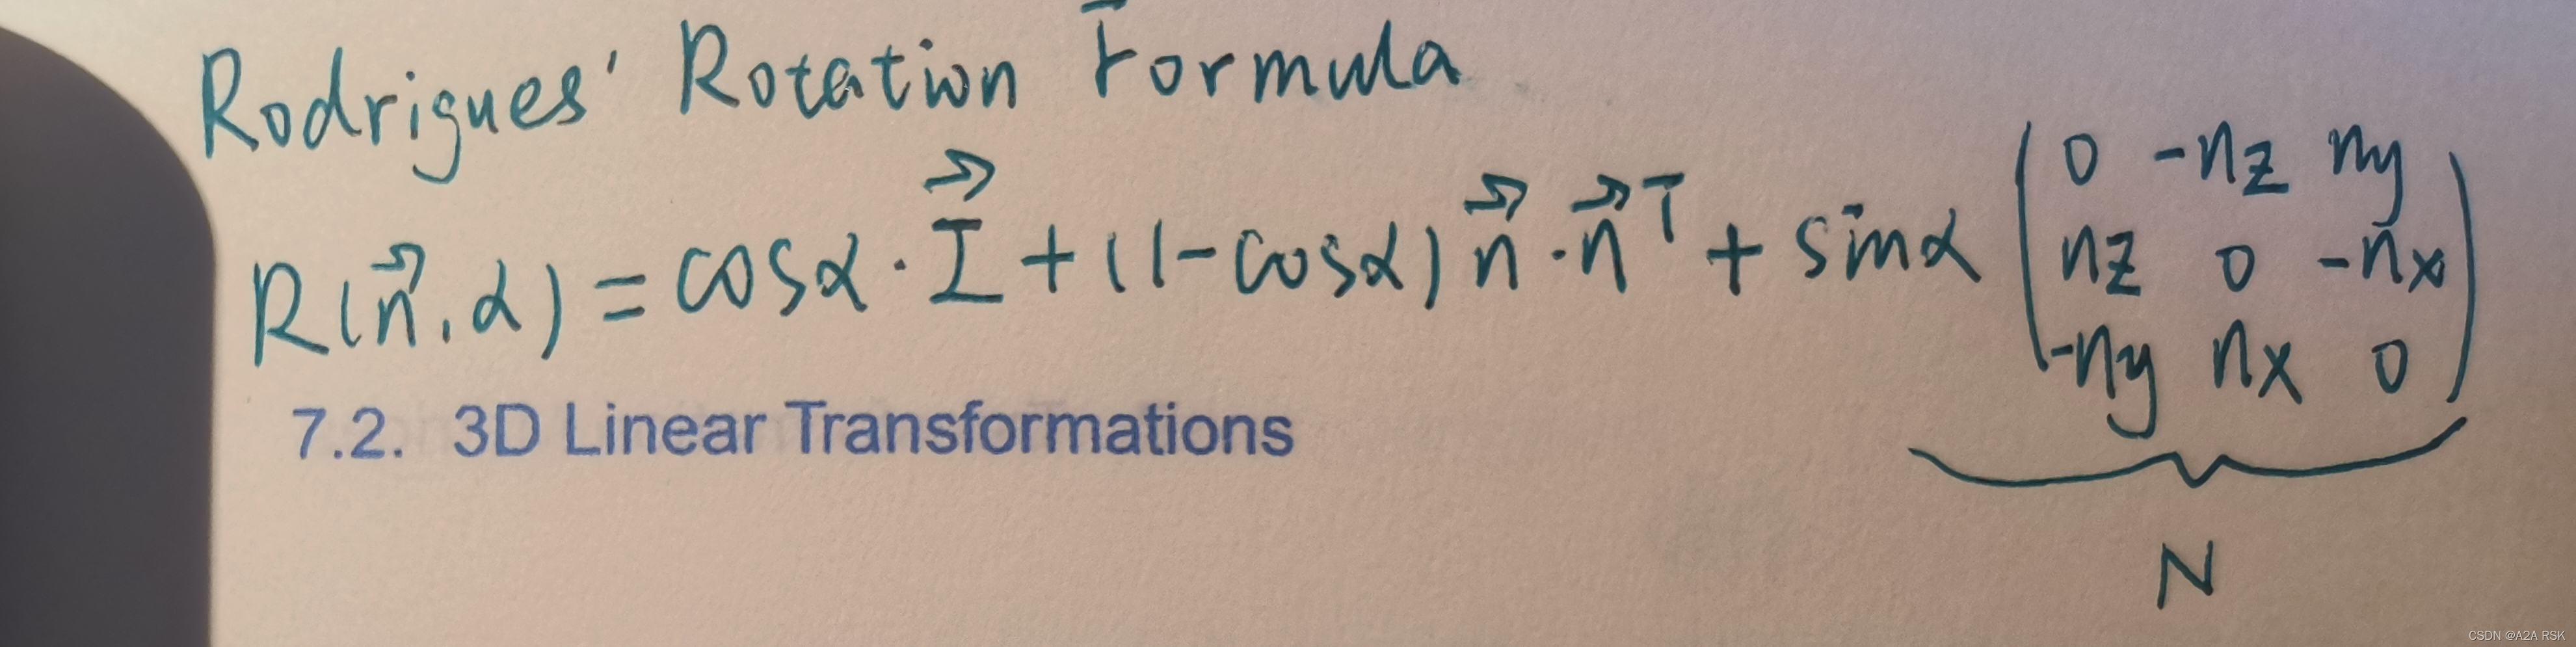 Rodrigues' Rotation Formula
R(n⃗, α) = cosα · I⃗ + (1-cosα) n⃗ · n⃗ᵀ + sinα
0 -nz ny
nz 0 -nx
-ny nx 0
7.2. 3D Linear Transformations
N
CSDN @A2A RSK